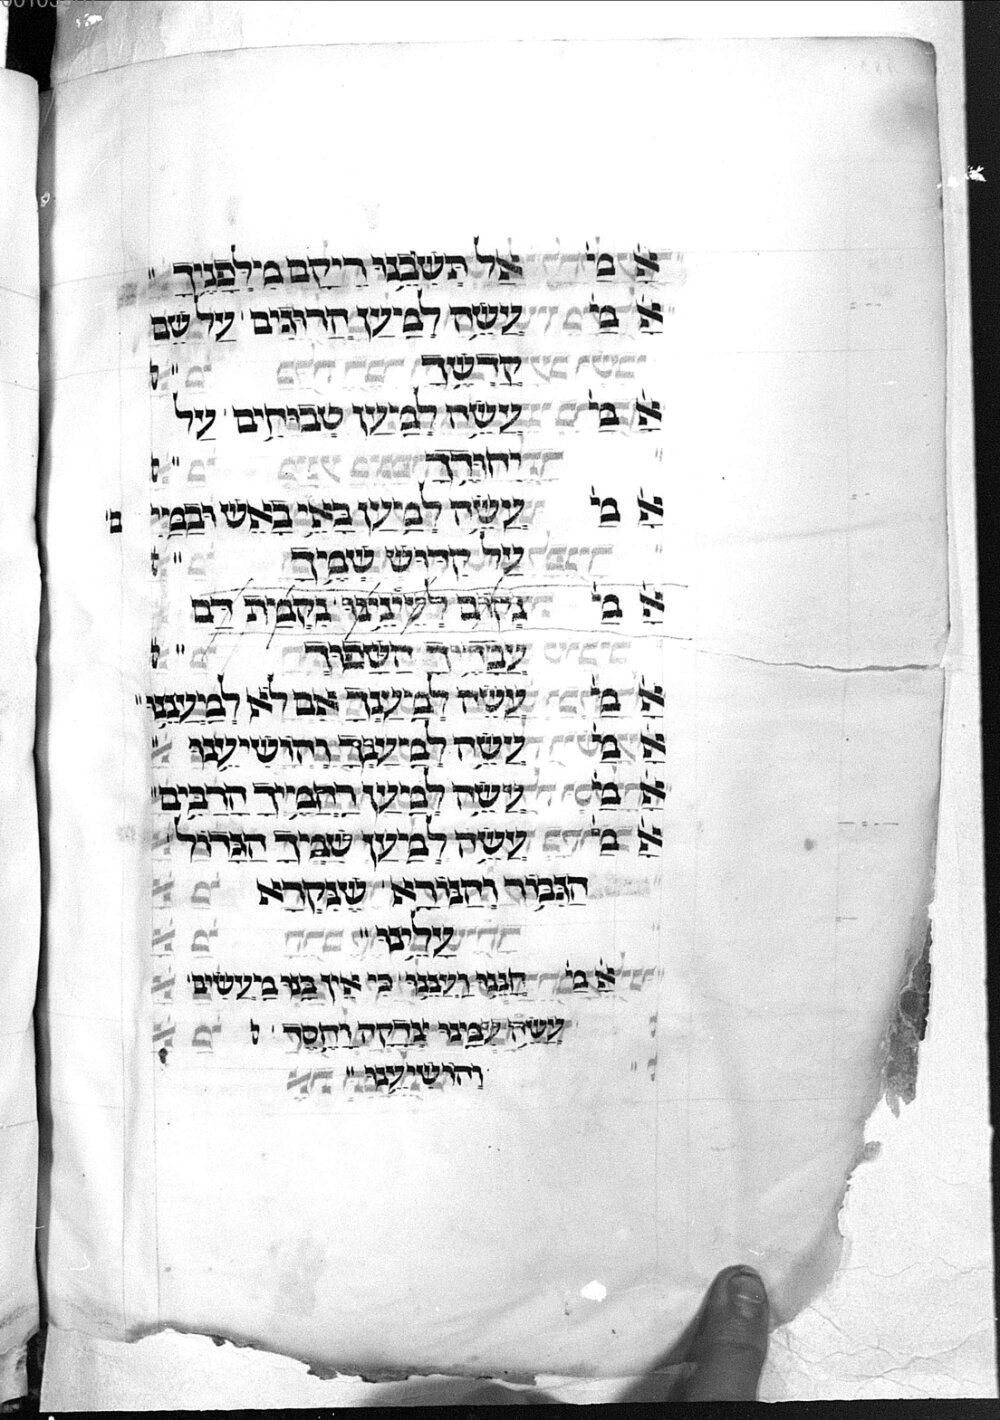 אָ מַ' אַל תְּשִׁבֵנוּ רֵיקָם מִילְּפָנֶיךָ "
אָ מַ' עֲשֵׂה לְמַיעַן הֲרוּגִים ' עַל שֵׁם
קָדְשֶׁךָ "
אָ מַ' עֲשֵׂה לְמַיעַן טְבוּחִים ' עַל
יִחוּדָךְ "
אָ מַ' עֲשֵׂה לְמַיעַן בָּאֵי בָאֵשׁ וּבַמַּיִ ם'
עַל קִדּוּשׁ שְׁמֶיךָ "
אָ מַ' נְקוֹם לְעֵינֵינוּ ' נִקְמַת דַּם
עֲבָדֶיךָ הַשָּׁפוּךְ "
אָ מַ' עֲשֵׂה לְמַיעַנְךָ אִם לֹא לְמַיעֲנֵנוּ "
אָ מַ' עֲשֵׂה לְמַיעַנְךָ וְהוֹשִׁיעֵנוּ "
אָ מַ' עֲשֵׂה לְמַיעַן רַחֲמֶיךָ הָרַבִּים "
אָ מַ' עֲשֵׂה לְמַיעַן שִׁמְךָ הַגָּדוֹל
הַגִּבּוֹר וְהַנּוֹרָא ' שֶׁנִּקְרָא
עָלֵינוּ "
אָ מַ' חָנֵּנוּ וַעֲנֵנוּ ' כִּי אֵין בָּנוּ מַעֲשִׂים '
עֲשֵׂה עִמָּנוּ צְדָקָה וָחֶסֶד '
וְהוֹשִׁיעֵנוּ "